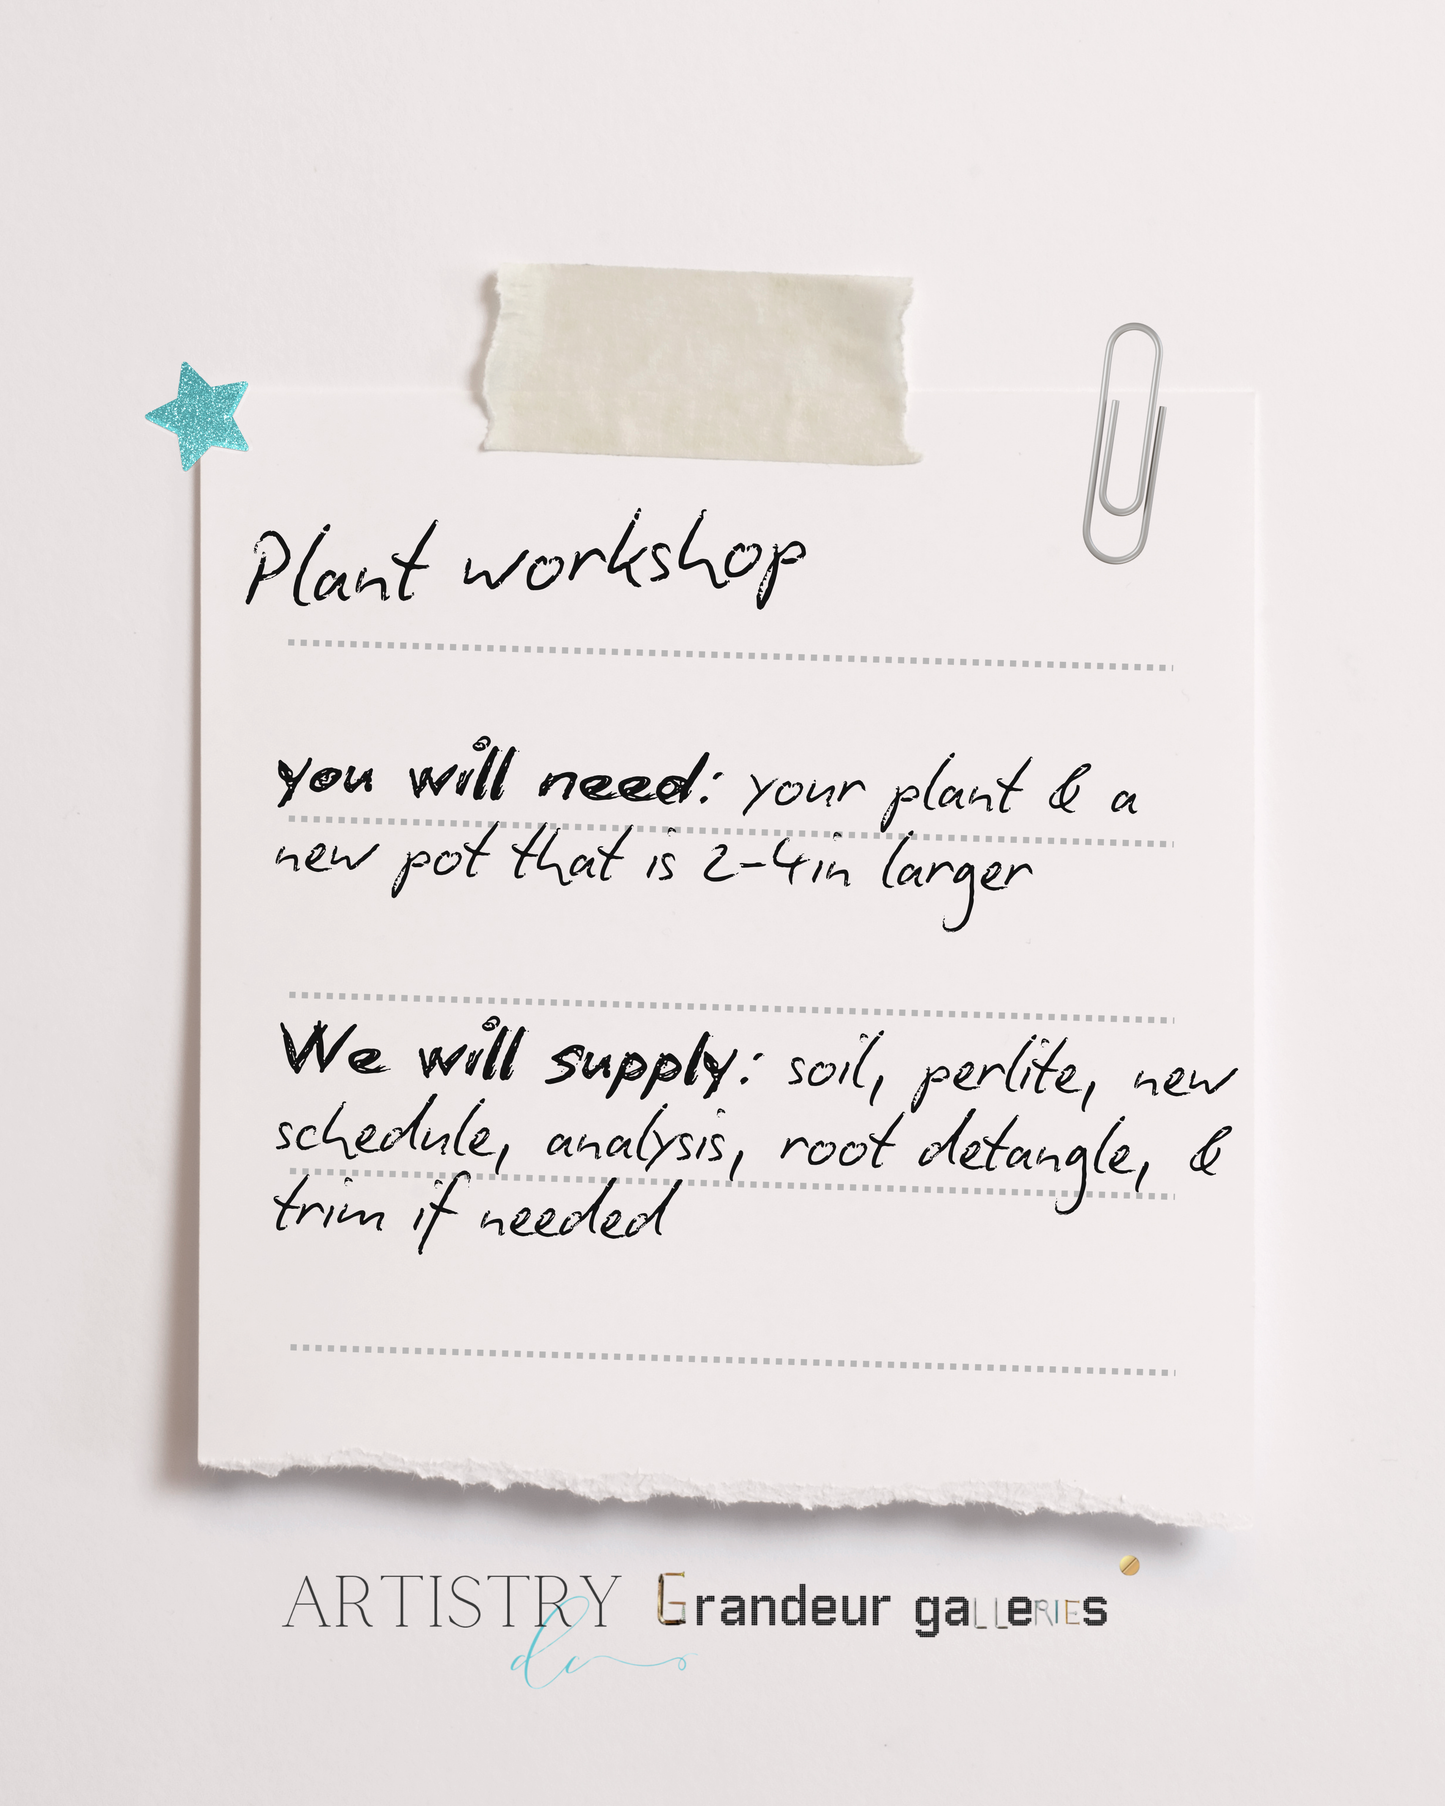 Plant workshop
you will need: your plant & a
new pot that is 2-4in larger
We will supply: soil, perlite, new
schedule, analysis, root detangle, &
trim if needed
ARTISTRY Grandeur galleries
dc